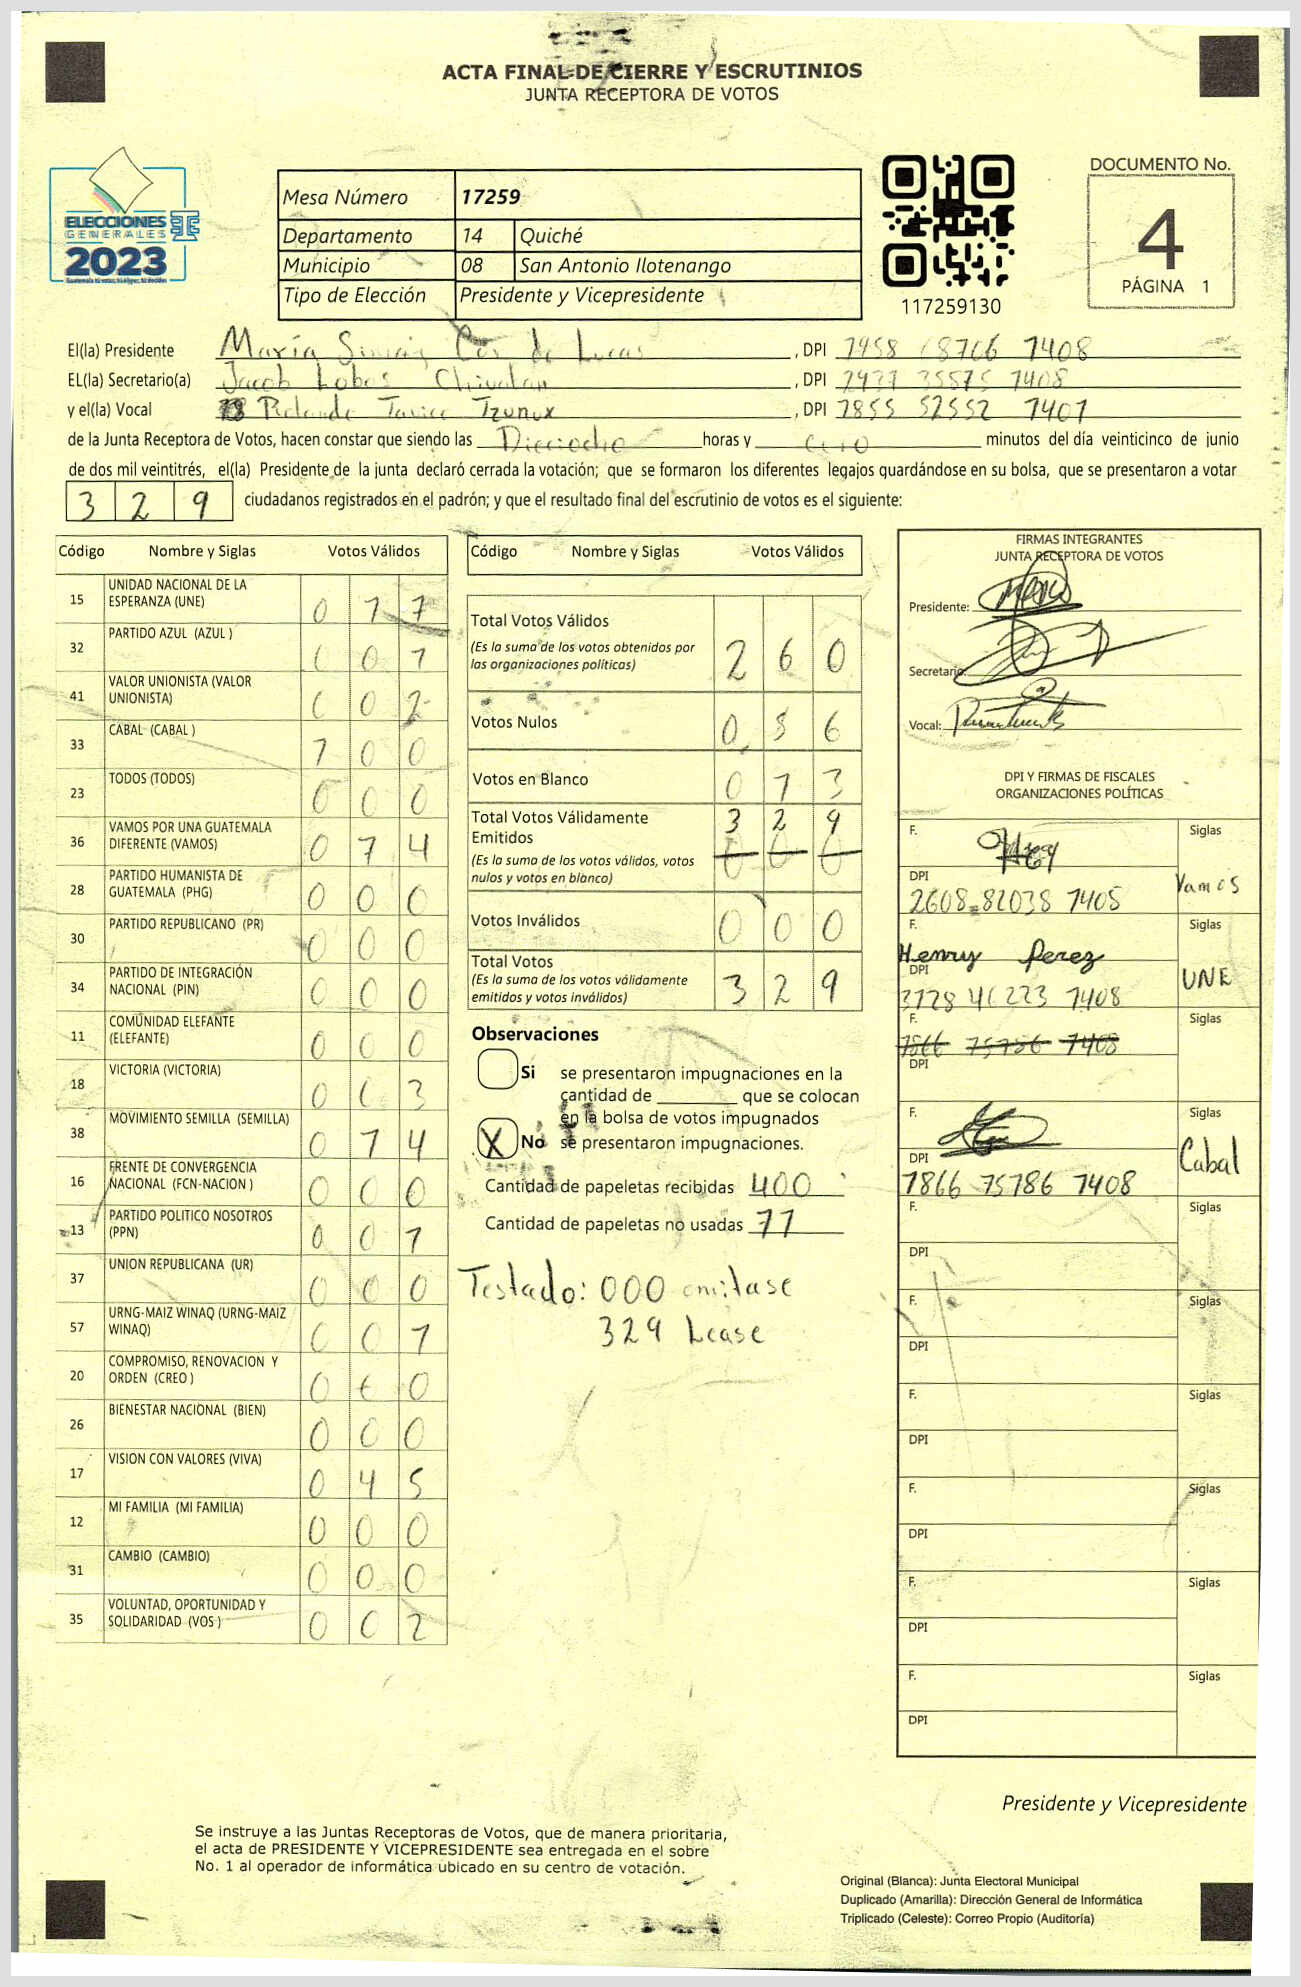 ACTA FINAL DE CIERRE Y ESCRUTINIOS
JUNTA RECEPTORA DE VOTOS
ELECCIONES
GENERALES
2023
Mesa Número 17259
Departamento 14 Quiché
Municipio 08 San Antonio Ilotenango
Tipo de Elección Presidente y Vicepresidente
117259130
DOCUMENTO No.
4
PÁGINA 1
El(la) Presidente María Cos de Lucas , DPI 7408
EL(la) Secretario(a) Jacob Lobos , DPI 7408
y el(la) Vocal Rolando Tzunux , DPI 7855 52552 7407
de la Junta Receptora de Votos, hacen constar que siendo las Dieciocho horas y cero minutos del día veinticinco de junio
de dos mil veintitrés, el(la) Presidente de la junta declaró cerrada la votación; que se formaron los diferentes legajos guardándose en su bolsa, que se presentaron a votar
3 2 9 ciudadanos registrados en el padrón; y que el resultado final del escrutinio de votos es el siguiente:
Código Nombre y Siglas Votos Válidos
15 UNIDAD NACIONAL DE LA ESPERANZA (UNE) 0 7 7
32 PARTIDO AZUL (AZUL ) 0 0 1
41 VALOR UNIONISTA (VALOR UNIONISTA) 0 0 2
33 CABAL (CABAL ) 1 0 0
23 TODOS (TODOS) 0 0 0
36 VAMOS POR UNA GUATEMALA DIFERENTE (VAMOS) 0 1 4
28 PARTIDO HUMANISTA DE GUATEMALA (PHG) 0 0 0
30 PARTIDO REPUBLICANO (PR) 0 0 0
34 PARTIDO DE INTEGRACIÓN NACIONAL (PIN) 0 0 0
11 COMUNIDAD ELEFANTE (ELEFANTE) 0 0 0
18 VICTORIA (VICTORIA) 0 0 3
38 MOVIMIENTO SEMILLA (SEMILLA) 0 1 4
16 FRENTE DE CONVERGENCIA NACIONAL (FCN-NACION ) 0 0 0
13 PARTIDO POLITICO NOSOTROS (PPN) 0 0 1
37 UNION REPUBLICANA (UR) 0 0 0
57 URNG-MAIZ WINAQ (URNG-MAIZ WINAQ) 0 0 1
20 COMPROMISO, RENOVACION Y ORDEN (CREO ) 0 0 0
26 BIENESTAR NACIONAL (BIEN) 0 0 0
17 VISION CON VALORES (VIVA) 0 4 5
12 MI FAMILIA (MI FAMILIA) 0 0 0
31 CAMBIO (CAMBIO) 0 0 0
35 VOLUNTAD, OPORTUNIDAD Y SOLIDARIDAD (VOS ) 0 0 2
Código Nombre y Siglas Votos Válidos
Total Votos Válidos 2 6 0
(Es la suma de los votos obtenidos por
las organizaciones políticas)
Votos Nulos 0 5 6
Votos en Blanco 0 1 3
Total Votos Válidamente 3 2 9
Emitidos 0 0 0
(Es la suma de los votos válidos, votos
nulos y votos en blanco)
Votos Inválidos 0 0 0
Total Votos
(Es la suma de los votos válidamente
emitidos y votos inválidos) 3 2 9
Observaciones
Si se presentaron impugnaciones en la
cantidad de ________ que se colocan
en la bolsa de votos impugnados
X No se presentaron impugnaciones.
Cantidad de papeletas recibidas 400
Cantidad de papeletas no usadas 71
Testado: 000 omitase
329 Lease
FIRMAS INTEGRANTES
JUNTA RECEPTORA DE VOTOS
Presidente:
Secretario:
Vocal:
DPI Y FIRMAS DE FISCALES
ORGANIZACIONES POLÍTICAS
F. Siglas
DPI Vamos
2608 82038 1405
F. Siglas
Henry Perez
DPI UNE
7408
F. Siglas
DPI
F. Siglas
DPI Cabal
1866 75786 1408
F. Siglas
DPI
F. Siglas
DPI
F. Siglas
DPI
F. Siglas
DPI
F. Siglas
DPI
F. Siglas
DPI
Presidente y Vicepresidente
Se instruye a las Juntas Receptoras de Votos, que de manera prioritaria,
el acta de PRESIDENTE Y VICEPRESIDENTE sea entregada en el sobre
No. 1 al operador de informática ubicado en su centro de votación.
Original (Blanca): Junta Electoral Municipal
Duplicado (Amarilla): Dirección General de Informática
Triplicado (Celeste): Correo Propio (Auditoría)